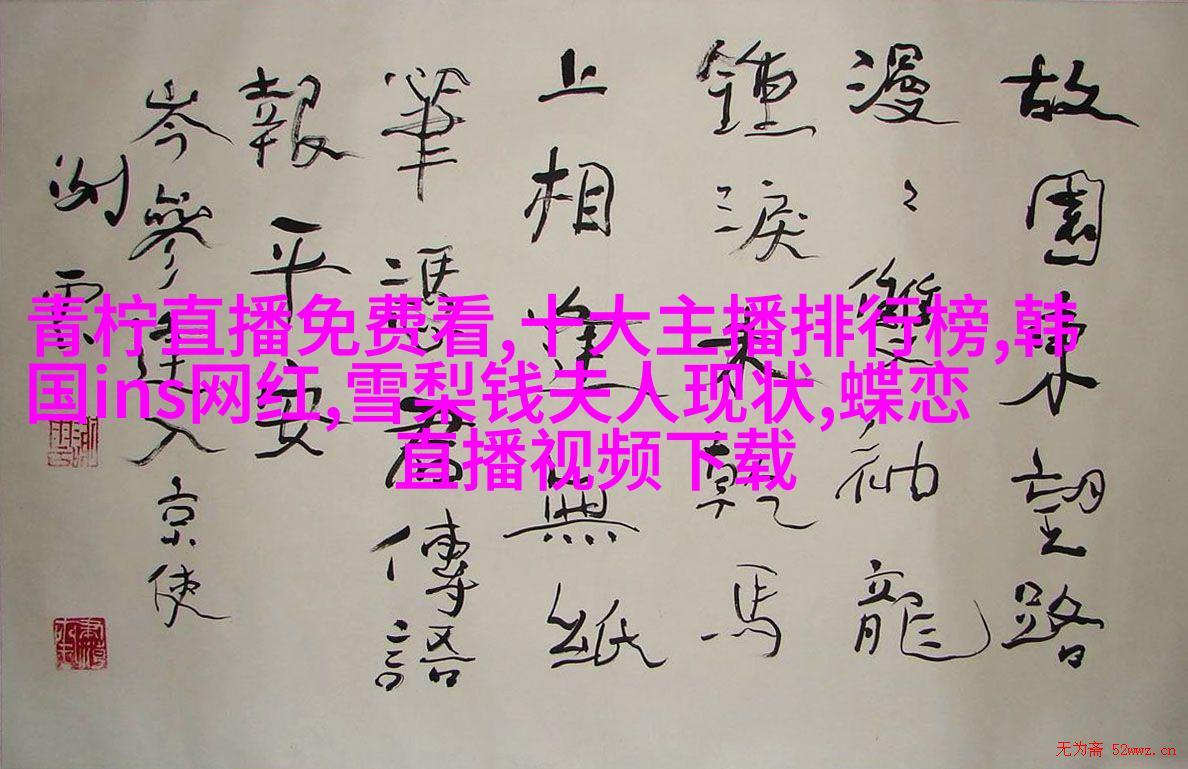 故園東望路
漫〻雙袖龍
鍾淚未乾馬
上相逢無紙
筆憑君傳語
報平安
岑參逢入京使
青柠直播免费看,十大主播排行榜,韩
国ins网红,雪梨钱夫人现状,蝶恋
直播视频下载
无为斋 52wwz.cn